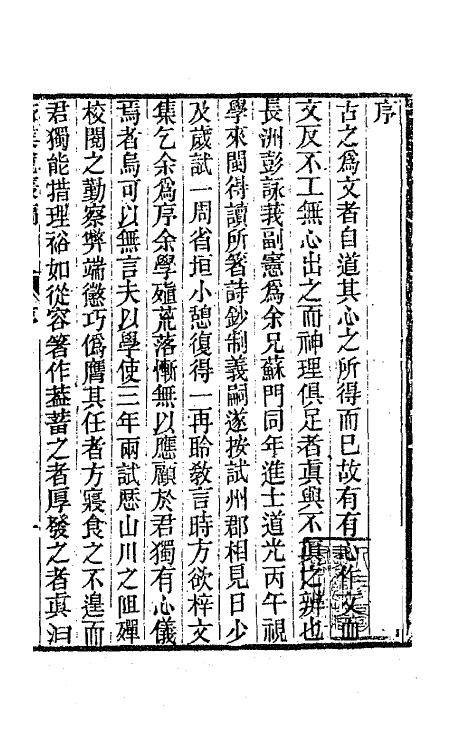 序
古之爲文者自道其心之所得而已故有有心作文而
文反不工無心出之而神理俱足者眞與不眞之辨也
長洲彭詠莪副憲爲余兄蘇門同年進士道光丙午視
學來閩得讀所箸詩鈔制義嗣遂按試州郡相見日少
及歲試一周省垣小憩復得一再聆敎言時方欲梓文
集乞余爲序余學殖荒落慚無以應顧於君獨有心儀
焉者烏可以無言夫以學使三年兩試歷山川之阻殫
校閱之勤察弊端懲巧僞膺其任者方寢食之不遑而
君獨能措理裕如從容箸作葢蓄之者厚發之者眞洎